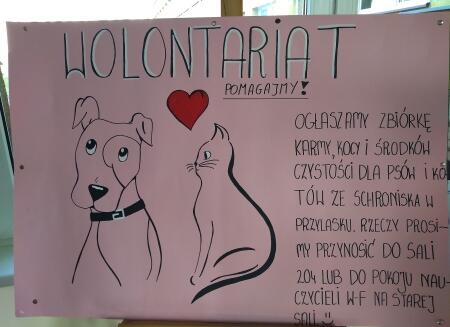 WOLONTARIAT
POMAGAJMY!
OGŁASZAMY ZBIÓRKĘ
KARMY, KOCY I ŚRODKÓW
CZYSTOŚCI DLA PSÓW I KO
TÓW ZE SCHRONISKA W
PRZYLASKU. RZECZY PROSI-
MY PRZYNOSIĆ DO SALI
204 LUB DO POKOJU NAU-
CZYCIELI W-F NA STAREJ
SALI